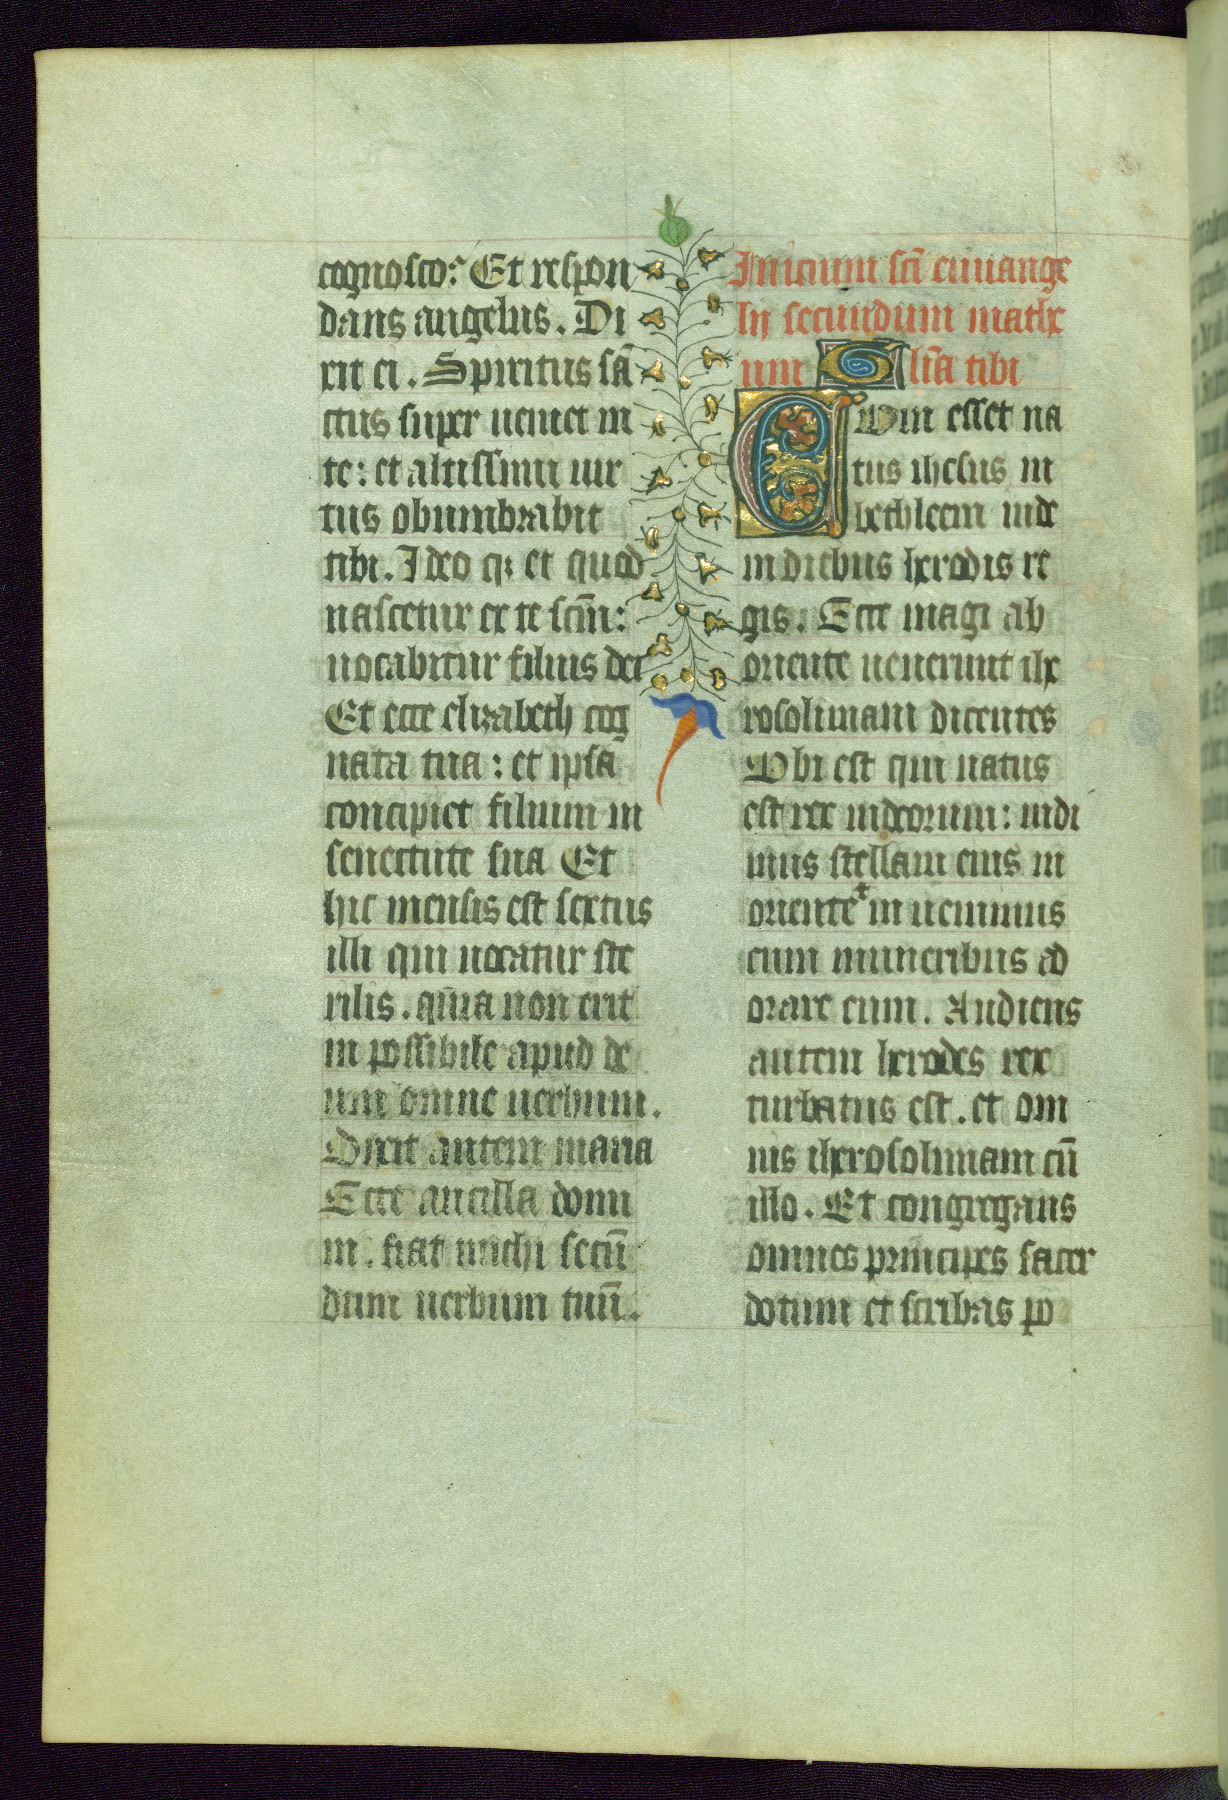 cognosco? Et respon
dans angelus. Di
xit ei. Spiritus sā
ctus super ueniet in
te: et altissimi uir
tus obumbrabit
tibi. Ideo q; et quod
nascetur ex te scm̄:
uocabitur filius dei
Et ecce elizabeth cog
nata tua: et ipsa
concipiet filium in
senectute sua Et
hic mensis est sextus
illi qui uocatur ste
rilis. quia non erit
in possibile apud de
um omne uerbum.
Dixit autem maria
Ecce ancilla domi
ni. fiat michi secū
dum uerbum tuū.
Inicium scī euuange
lii secundum mathe
um Glīa tibi
CUm esset na
tus ihesus in
bethleem iude
in diebus herodis re
gis. Ecce magi ab
oriente uenerunt ihe
rosolimam dicentes
Ubi est qui natus
est rex iudeorum: uidi
mus stellam eius in
oriente in uenimus
cum muneribus ad
orare eum. Audiens
autem herodes rex
turbatus est. et om
nis iherosolimam cū
illo. Et congregans
omnes principes sacer
dotum et scribas po